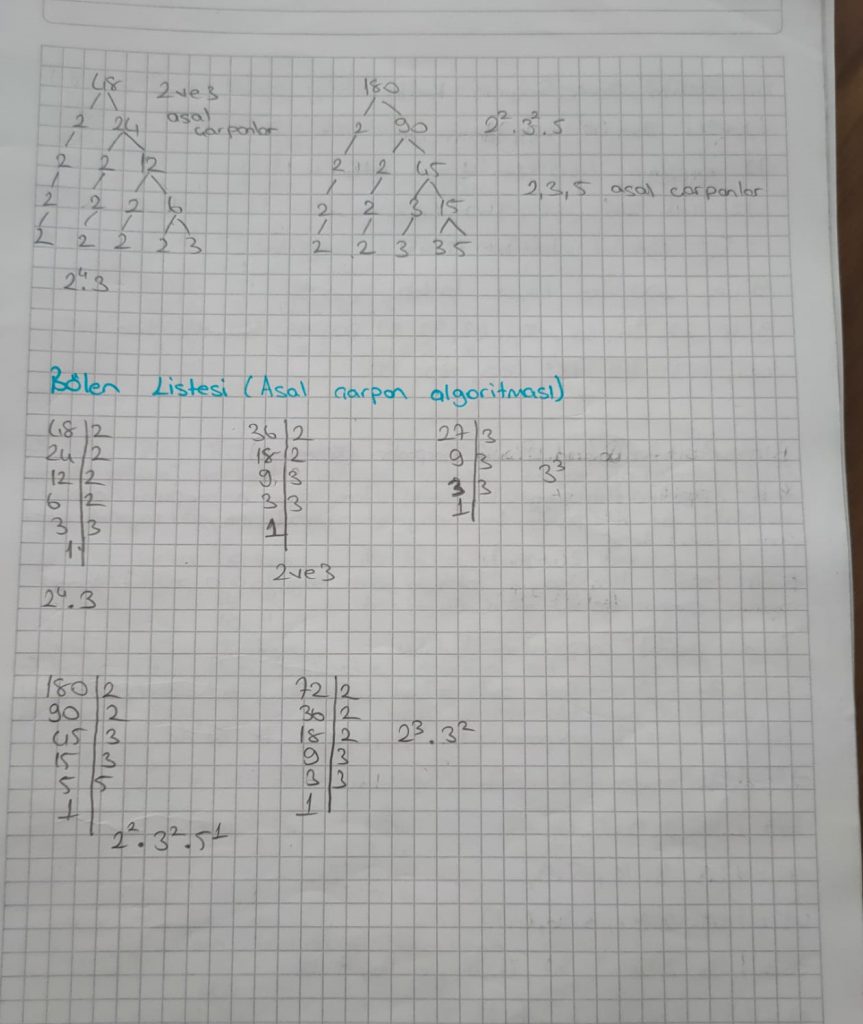 48 2 ve 3
2 24 asal
çarponlor
2 2 12
2 2 2 6
2 2 2 2 3
2⁴.3
180
2 90 2².3².5
2 2 45
2,3,5 asal çarponlor
2 2 3 15
2 2 3 3 5
Bölen Listesi (Asal çarpon algoritması)
48 | 2
24 | 2
12 | 2
6 | 2
3 | 3
1
2⁴.3
36 | 2
18 | 2
9 | 3
3 | 3
1
2 ve 3
27 | 3
9 | 3
3 | 3
1
3³
180 | 2
90 | 2
45 | 3
15 | 3
5 | 5
1
2².3².5¹
72 | 2
36 | 2
18 | 2
9 | 3
3 | 3
1
2³.3²